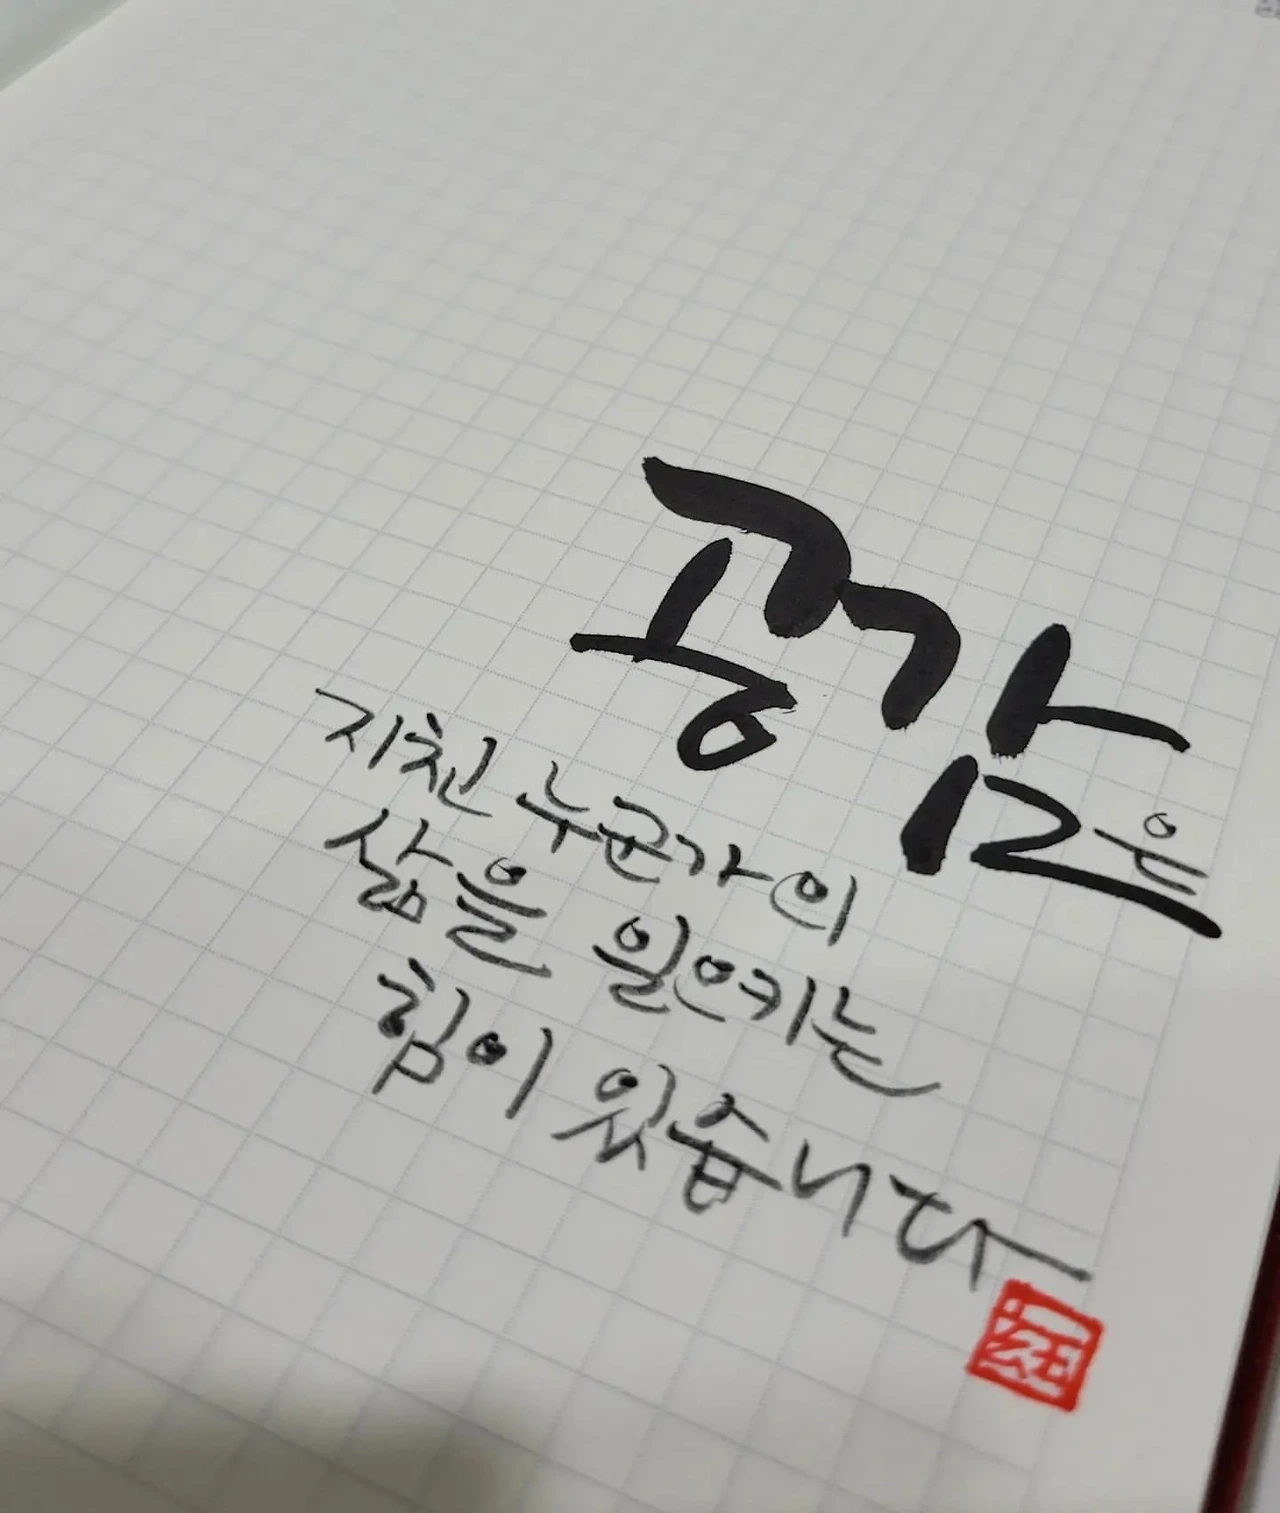 공감은
지친 누군가의
삶을 일으키는
힘이 있습니다